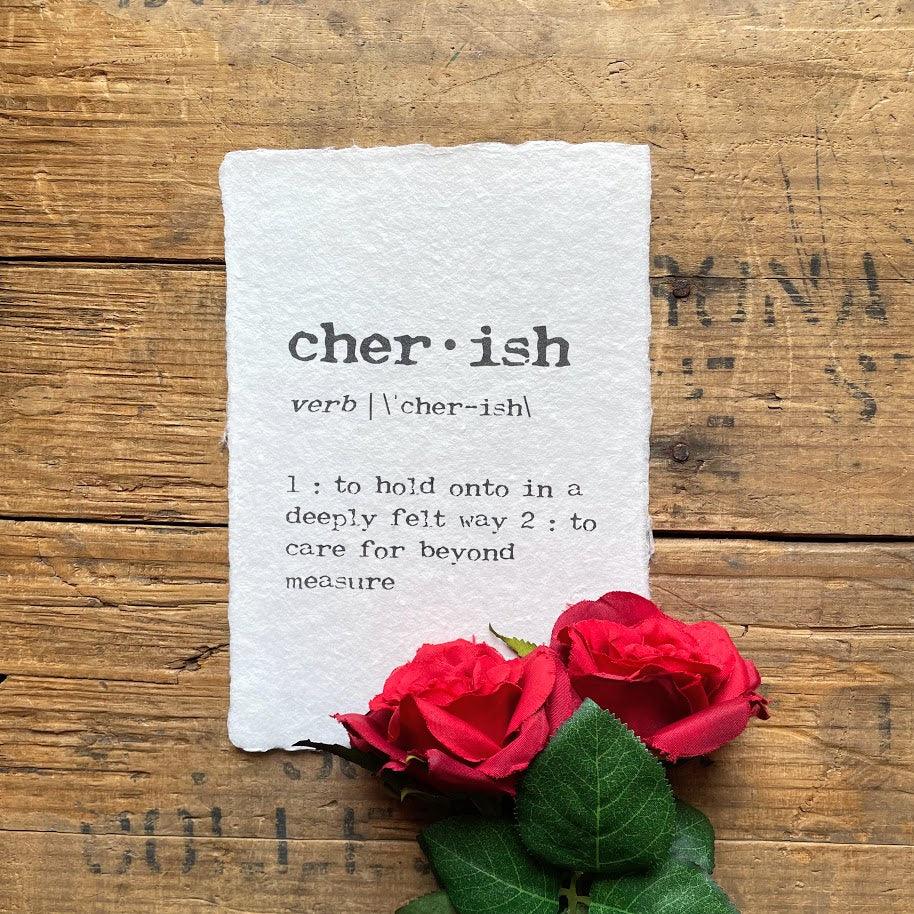 cher·ish
verb | \ˈcher-ish\
1 : to hold onto in a
deeply felt way 2 : to
care for beyond
measure